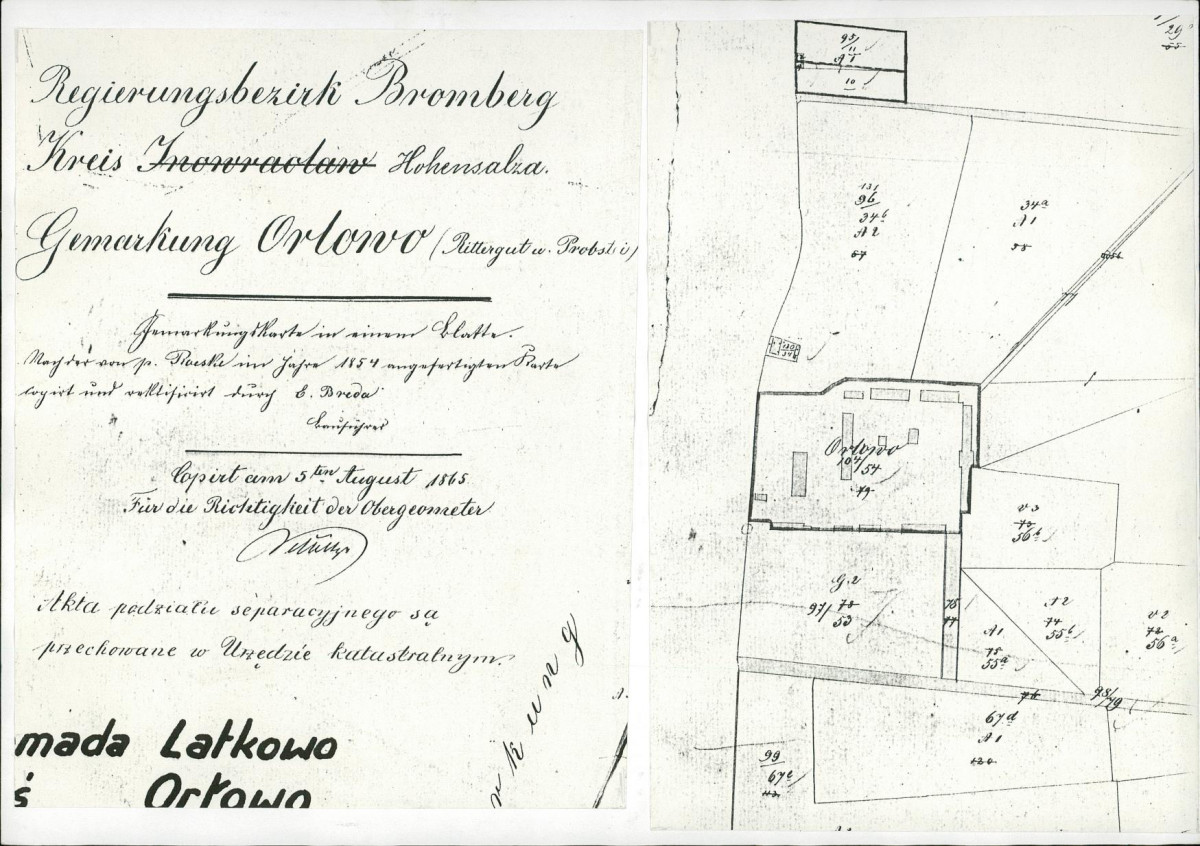 Regierungsbezirk Bromberg
Kreis Inowraclaw Hohensalza.
Gemarkung Orlowo (Rittergut u. Probstei)
Gemarkungskarte in einem Blatte.
Nach der von p. im Jahre 1854 angefertigten Karte
copirt und rektifizirt durch C. Breda
Bauführer
Copirt am 5ten August 1865
Für die Richtigkeit der Obergeometer
Akta podziału separacyjnego są
przechowane w Urzędzie katastralnym.
mada Łatkowo
ś Orłowo
rkung
95/11
A 1
10
1/29
55
131
96
34b
A2
57
34a
A1
58
Orlowo
104/54
79
V 3
73
56b
G.2
97/78
53
78
77
A1
75
55a
A2
74
55b
V 2
72
56a
76
98/79
67d
A1
120
99
67c